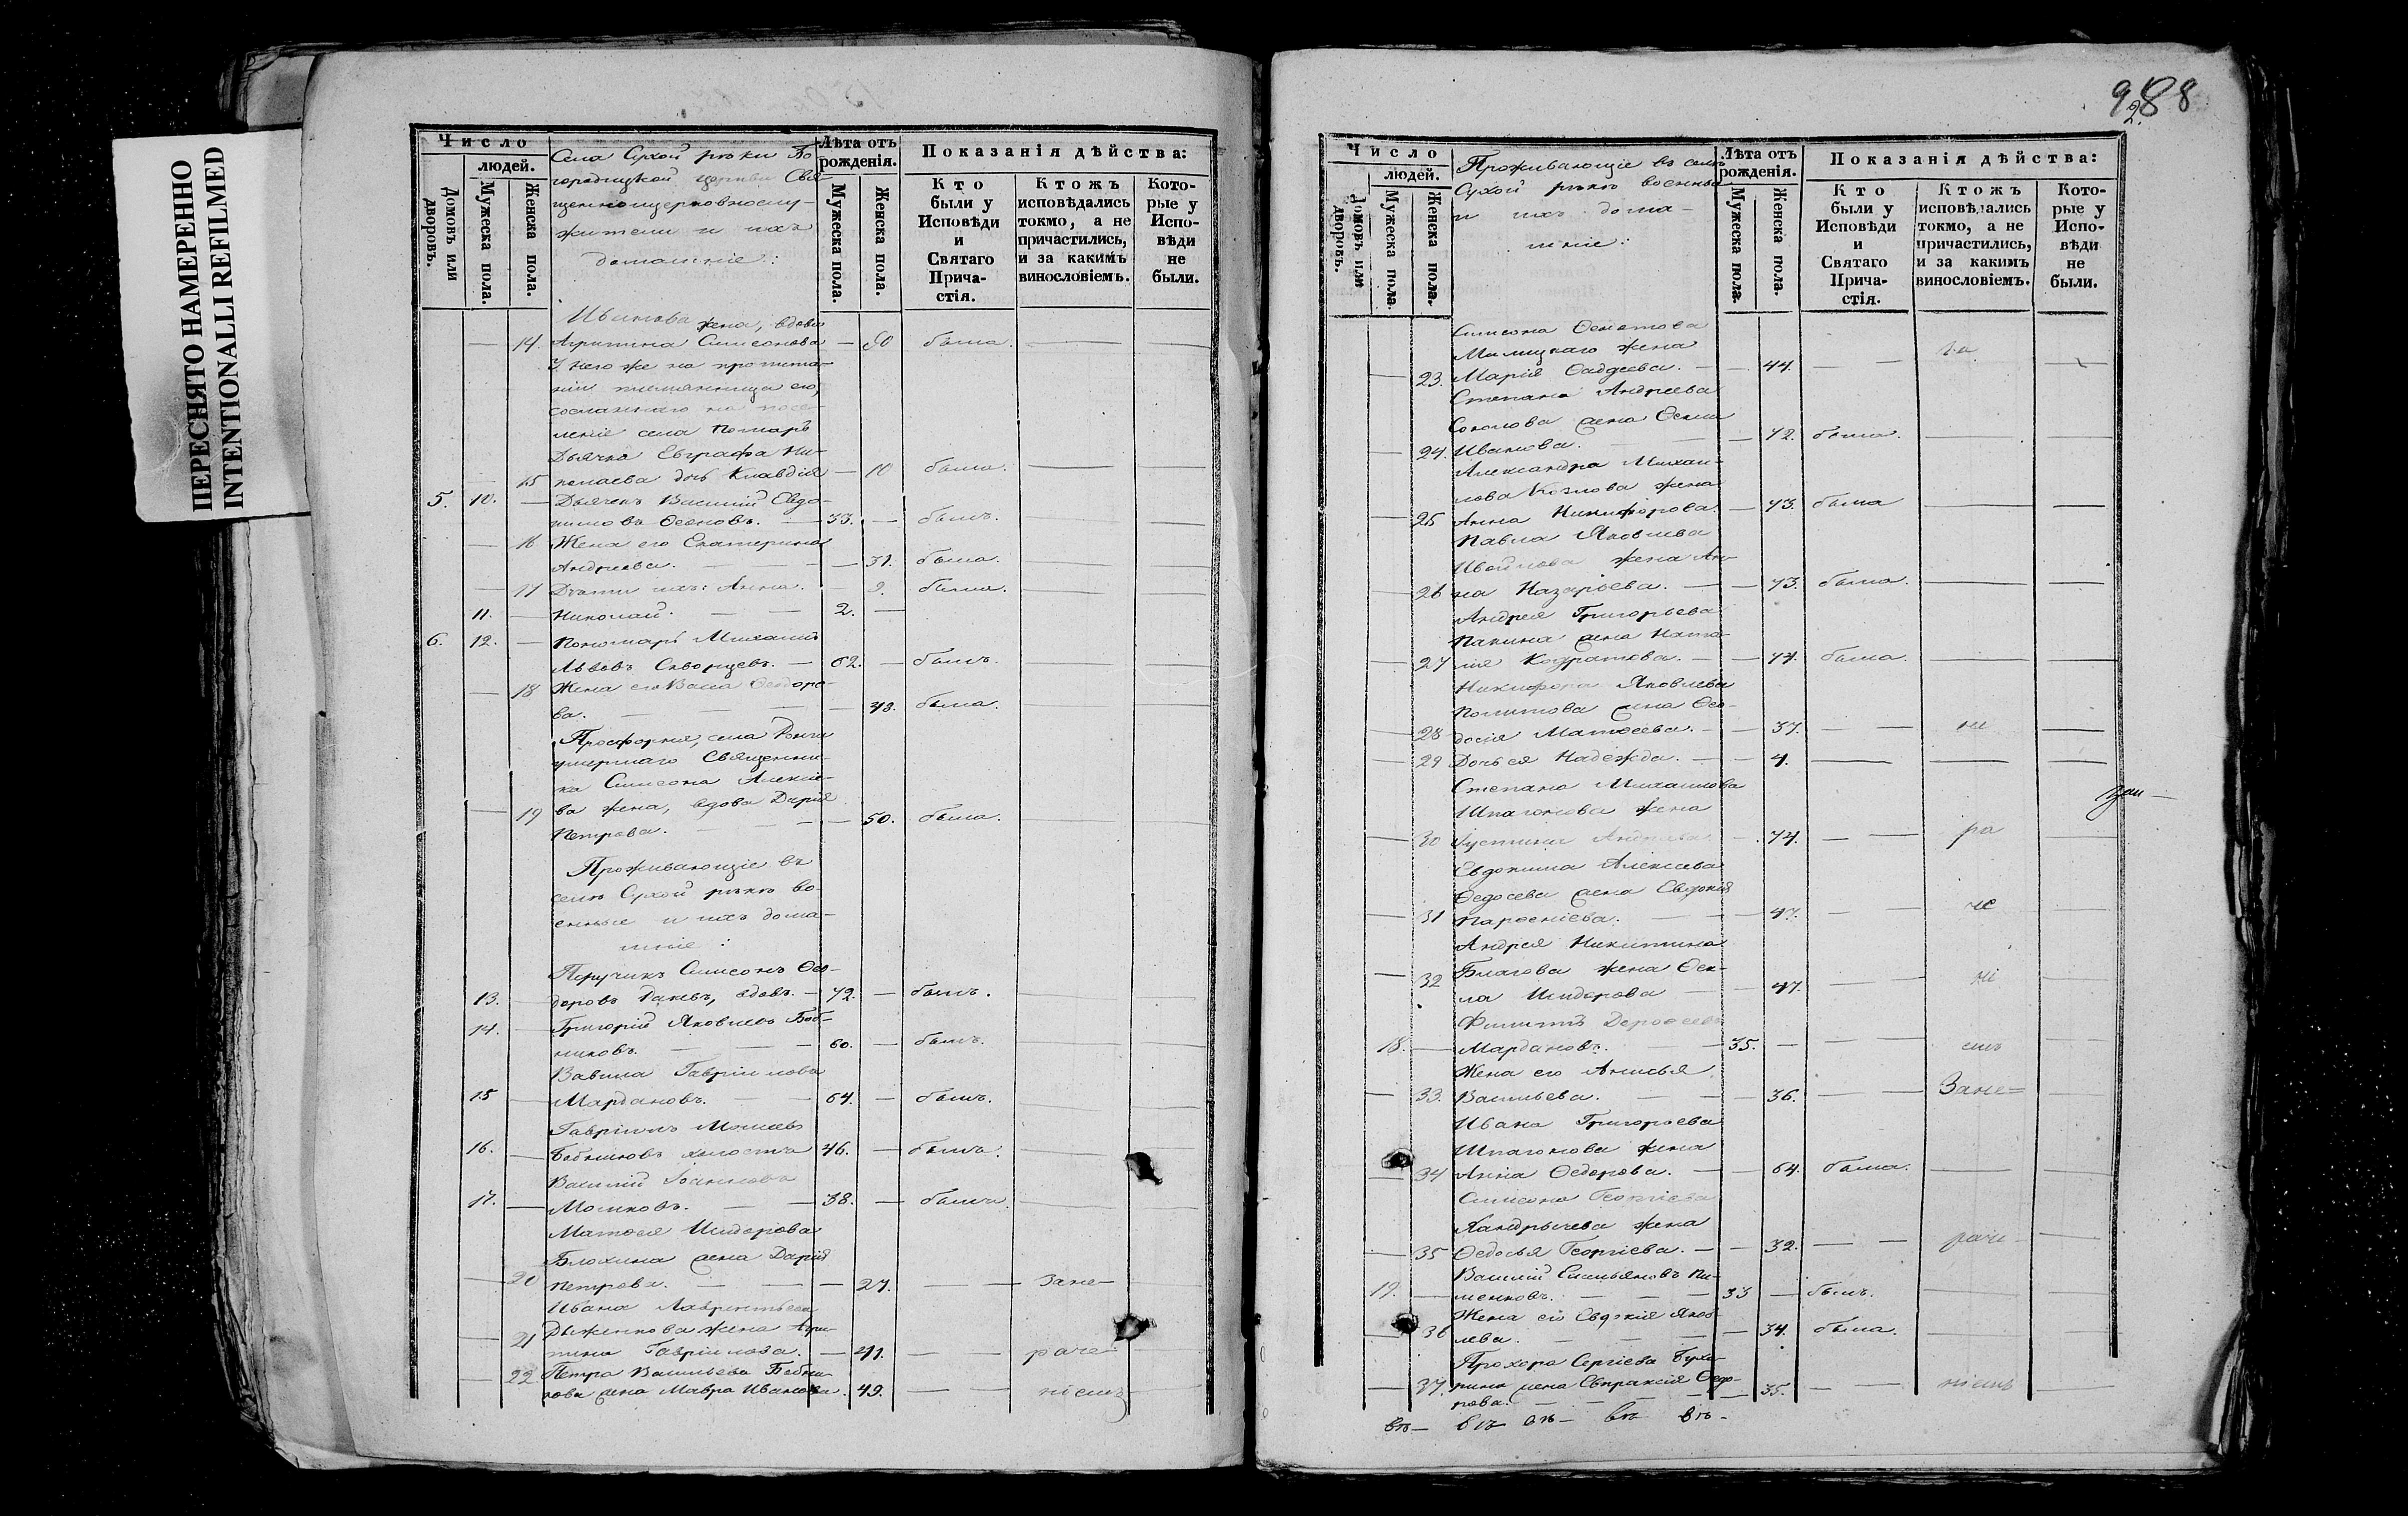 ПЕРЕСНЯТО НАМЕРЕННО
INTENTIONALLI REFILMED
Число
людей.
Домовъ или дворовъ.
Мужеска пола.
Женска пола.
Села Сухой рѣки Бо
городицкой церкви Свя-
щенноцерковнослу-
жители и ихъ
домашніе:
Лѣта отъ рожденія.
Мужеска пола.
Женска пола.
Показанія дѣйства:
Кто были у Исповѣди и Святаго Прича-стія.
Ктожъ исповѣдались токмо, а не причастились, и за какимъ винословіемъ.
Кото-рые у Испо-вѣди не были.
Иванова жена, вдова
14. Агрипина Симеонова — была.
У него же на пропита-
ніи племянница его,
сосланнаго на посе-
леніе села
Дьячка Евграфа Ни-
15 дочь Клавдія — 10 была.
5. 10. — Дьячекъ Василій Евдо-
кимовъ — 33. — былъ.
16 Жена его Екатерина
Андреева. — 31. была.
17 Дѣти ихъ: Анна. 9. была.
11. — Николай. — 2. —
6. 12. — Пономарь Михаилъ
Львовъ Скворцевъ. — 62. — былъ.
18 Жена его Ѳеодоро-
ва. — 48. была.
Просфорня, села
умершаго Священни-
ка Симеона Алексѣе-
19 ва жена, вдова Дарія
Петрова. — 50. была.
Проживающіе въ
селѣ Сухой рѣкѣ во-
енные и ихъ дома-
шніе:
Поручикъ Симеонъ Ѳео-
13. доровъ вдовъ. — 72. — былъ.
14. — Григорій Яковлевъ Боб-
никовъ. — 60. — былъ.
Вавила Гавріиловъ
15 — Мардановъ. — 64. — былъ.
Гавріилъ Моисеевъ
16. — холостъ 46. — былъ.
Василій Іоанновъ
17. — — 38. — былъ.
Матѳея Исидорова
Блохина жена Дарія
20 Петрова. — 27. — Зане—
Ивана Лаврентьева
21 Дыженкова жена Агри-
пина Гавріилова. — 41. — раче-
22. Петра Васильева
жена Мавра Иванова. 49. — ніемъ
9288
Число
людей.
Домовъ или дворовъ.
Мужеска пола.
Женска пола.
Проживающіе въ селѣ
Сухой рѣкѣ военные
и ихъ дома-
шніе:
Лѣта отъ рожденія.
Мужеска пола.
Женска пола.
Показанія дѣйства:
Кто были у Исповѣди и Святаго Прича-стія.
Ктожъ исповѣдались токмо, а не причастились, и за какимъ винословіемъ.
Кото-рые у Испо-вѣди не были.
Симеона
жена
23. Марія Ѳаддеева. — 44. —
Степана Андреева
Соколова жена Ѳекла
24. Иванова. — 72. была.
Александра Михаи-
лова Козлова жена
25 Анна Никифорова. — 73. была
Павла Яковлева
жена Ан-
26 на Назарьева. — 73. была.
Андрея Григорьева
Панина жена Ната-
27 лія Кодратова. — 74. была.
Никифора Яковлева
жена Ѳео-
28 досія Матѳеева. — 37. — не
29 Дочь ея Надежда. — 4. —
Степана Михаилова
Шпагонова жена
30 Іустина Андреева. — 74. — ра
Евдокима Алексѣева
Ѳедосева жена Евдокія
31 Парѳеніева. — 47. — че
Андрея Никитина
32 Благова жена Ѳек-
ла Исидорова — 47. — ні
Филиппъ Дороѳеевъ
18. — Мардановъ. — 35. — емъ
Жена его Анисья
33. Васильева. — 36. — Зане=
Ивана Григорьева
Шпагонова жена
34 Анна Ѳедорова. — 64. была.
Симеона Георгіева
жена
35 Ѳедосья Георгіева. — 32. — раче
Василій Емельяновъ Пи-
19. — менковъ. — 33 — былъ.
36 Жена его Евдокія Яков-
лева. — 34. была.
Прохора Сергіева
37. жена Евпраксія Ѳедо-
рова. — 35. — ніемъ